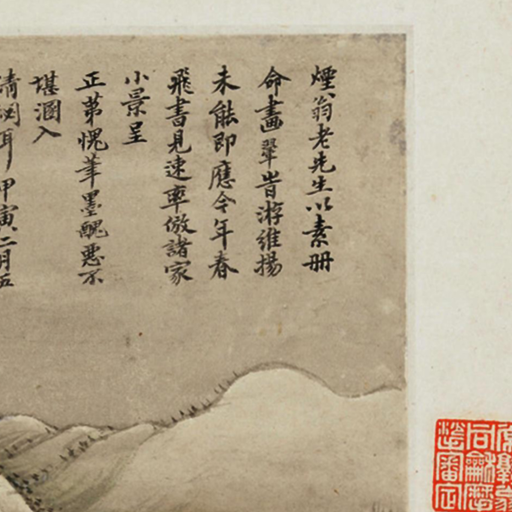 煙翁老先生以素冊
命畫翬昔游維揚
未能即應今年春
飛書見速率倣諸家
小景呈
正第愧筆墨醜惡不
堪溷入
清閟耳甲寅二月五